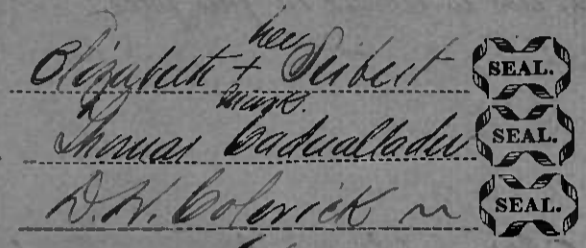 her
Elizabeth + Seibert SEAL.
mark.
Thomas Cadwallader SEAL.
D. W. Colerick SEAL.